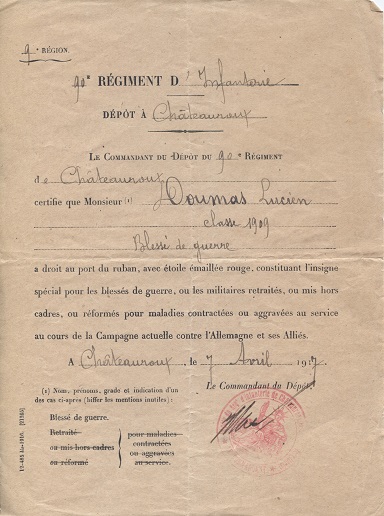 9e RÉGION.
90e RÉGIMENT D'Infanterie
DÉPÔT À Châteauroux
LE COMMANDANT DU DÉPÔT DU 90e RÉGIMENT
de Châteauroux
certifie que Monsieur (1) Doumas Lucien
classe 1909
Blessé de guerre
a droit au port du ruban, avec étoile émaillée rouge, constituant l'insigne
spécial pour les blessés de guerre, ou les militaires retraités, ou mis hors
cadres, ou réformés pour maladies contractées ou aggravées au service
au cours de la Campagne actuelle contre l'Allemagne et ses Alliés.
A Châteauroux, le 7 Avril 1917.
Le Commandant du Dépôt,
(1) Nom, prénoms, grade et indication d'un
des cas ci-après (biffer les mentions inutiles) :
Blessé de guerre.
Retraité
ou mis hors cadres
ou réformé
pour maladies
contractées
ou aggravées
au service.